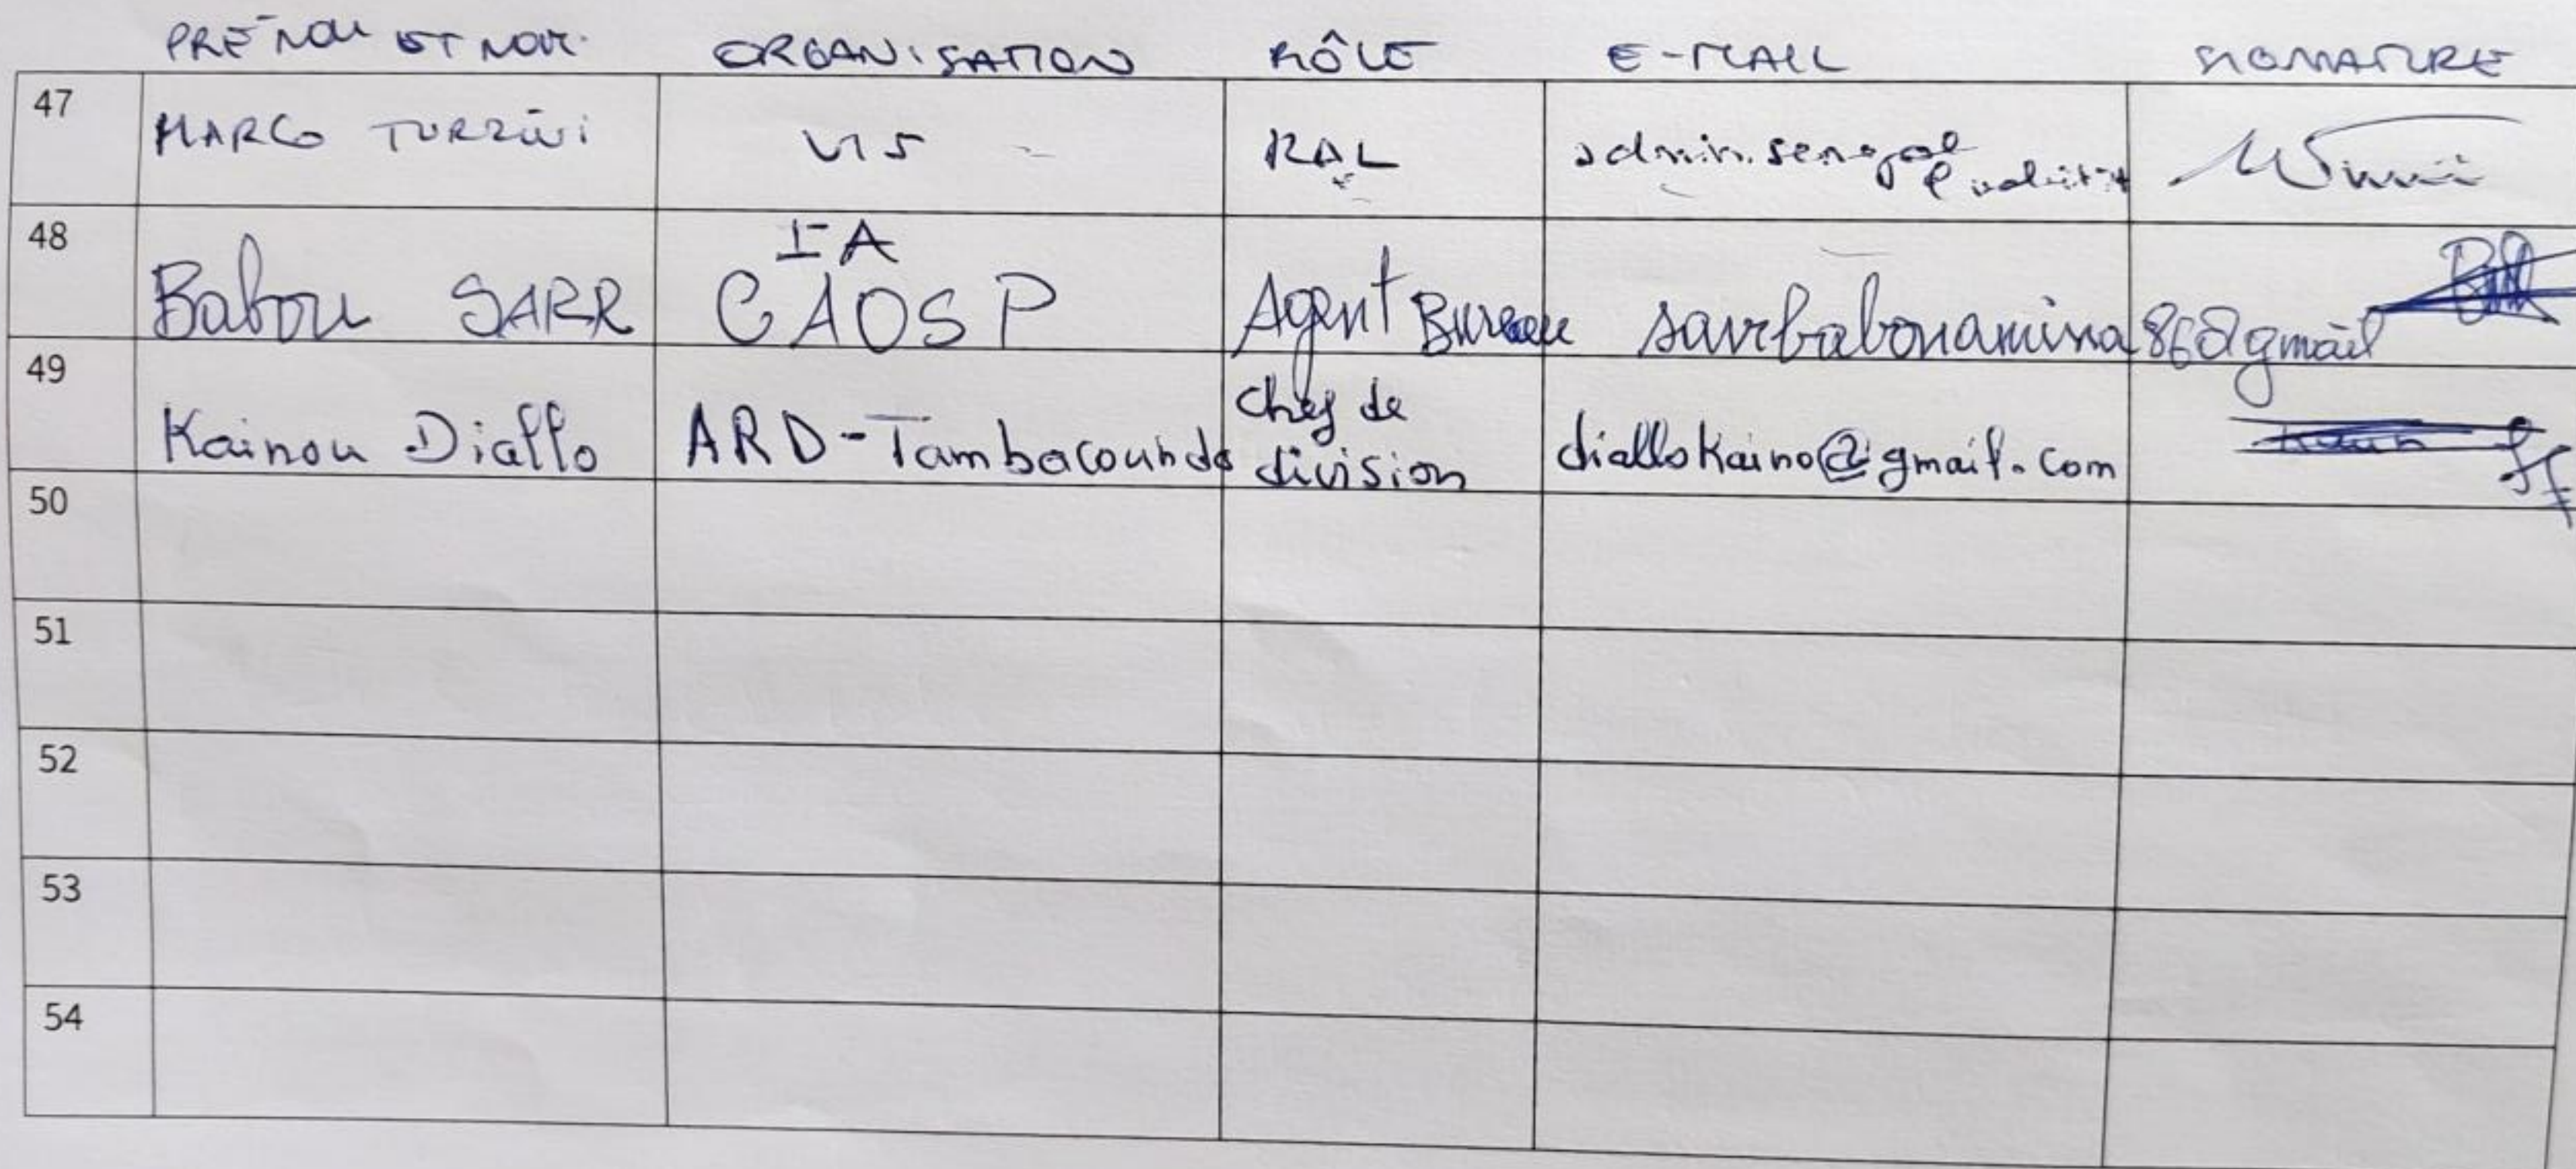 PRÉNOM ET NOM ORGANISATION RÔLE E-MAIL SIGNATURE
47 MARCO TURZINI VIS RAL admin.senegal
48 Babou SARR IA CAOSP Agent Bureau sarrbabouamina86@gmail
49 Kainou Diallo ARD-Tambacounda Chef de division diallokaino@gmail.com
50
51
52
53
54